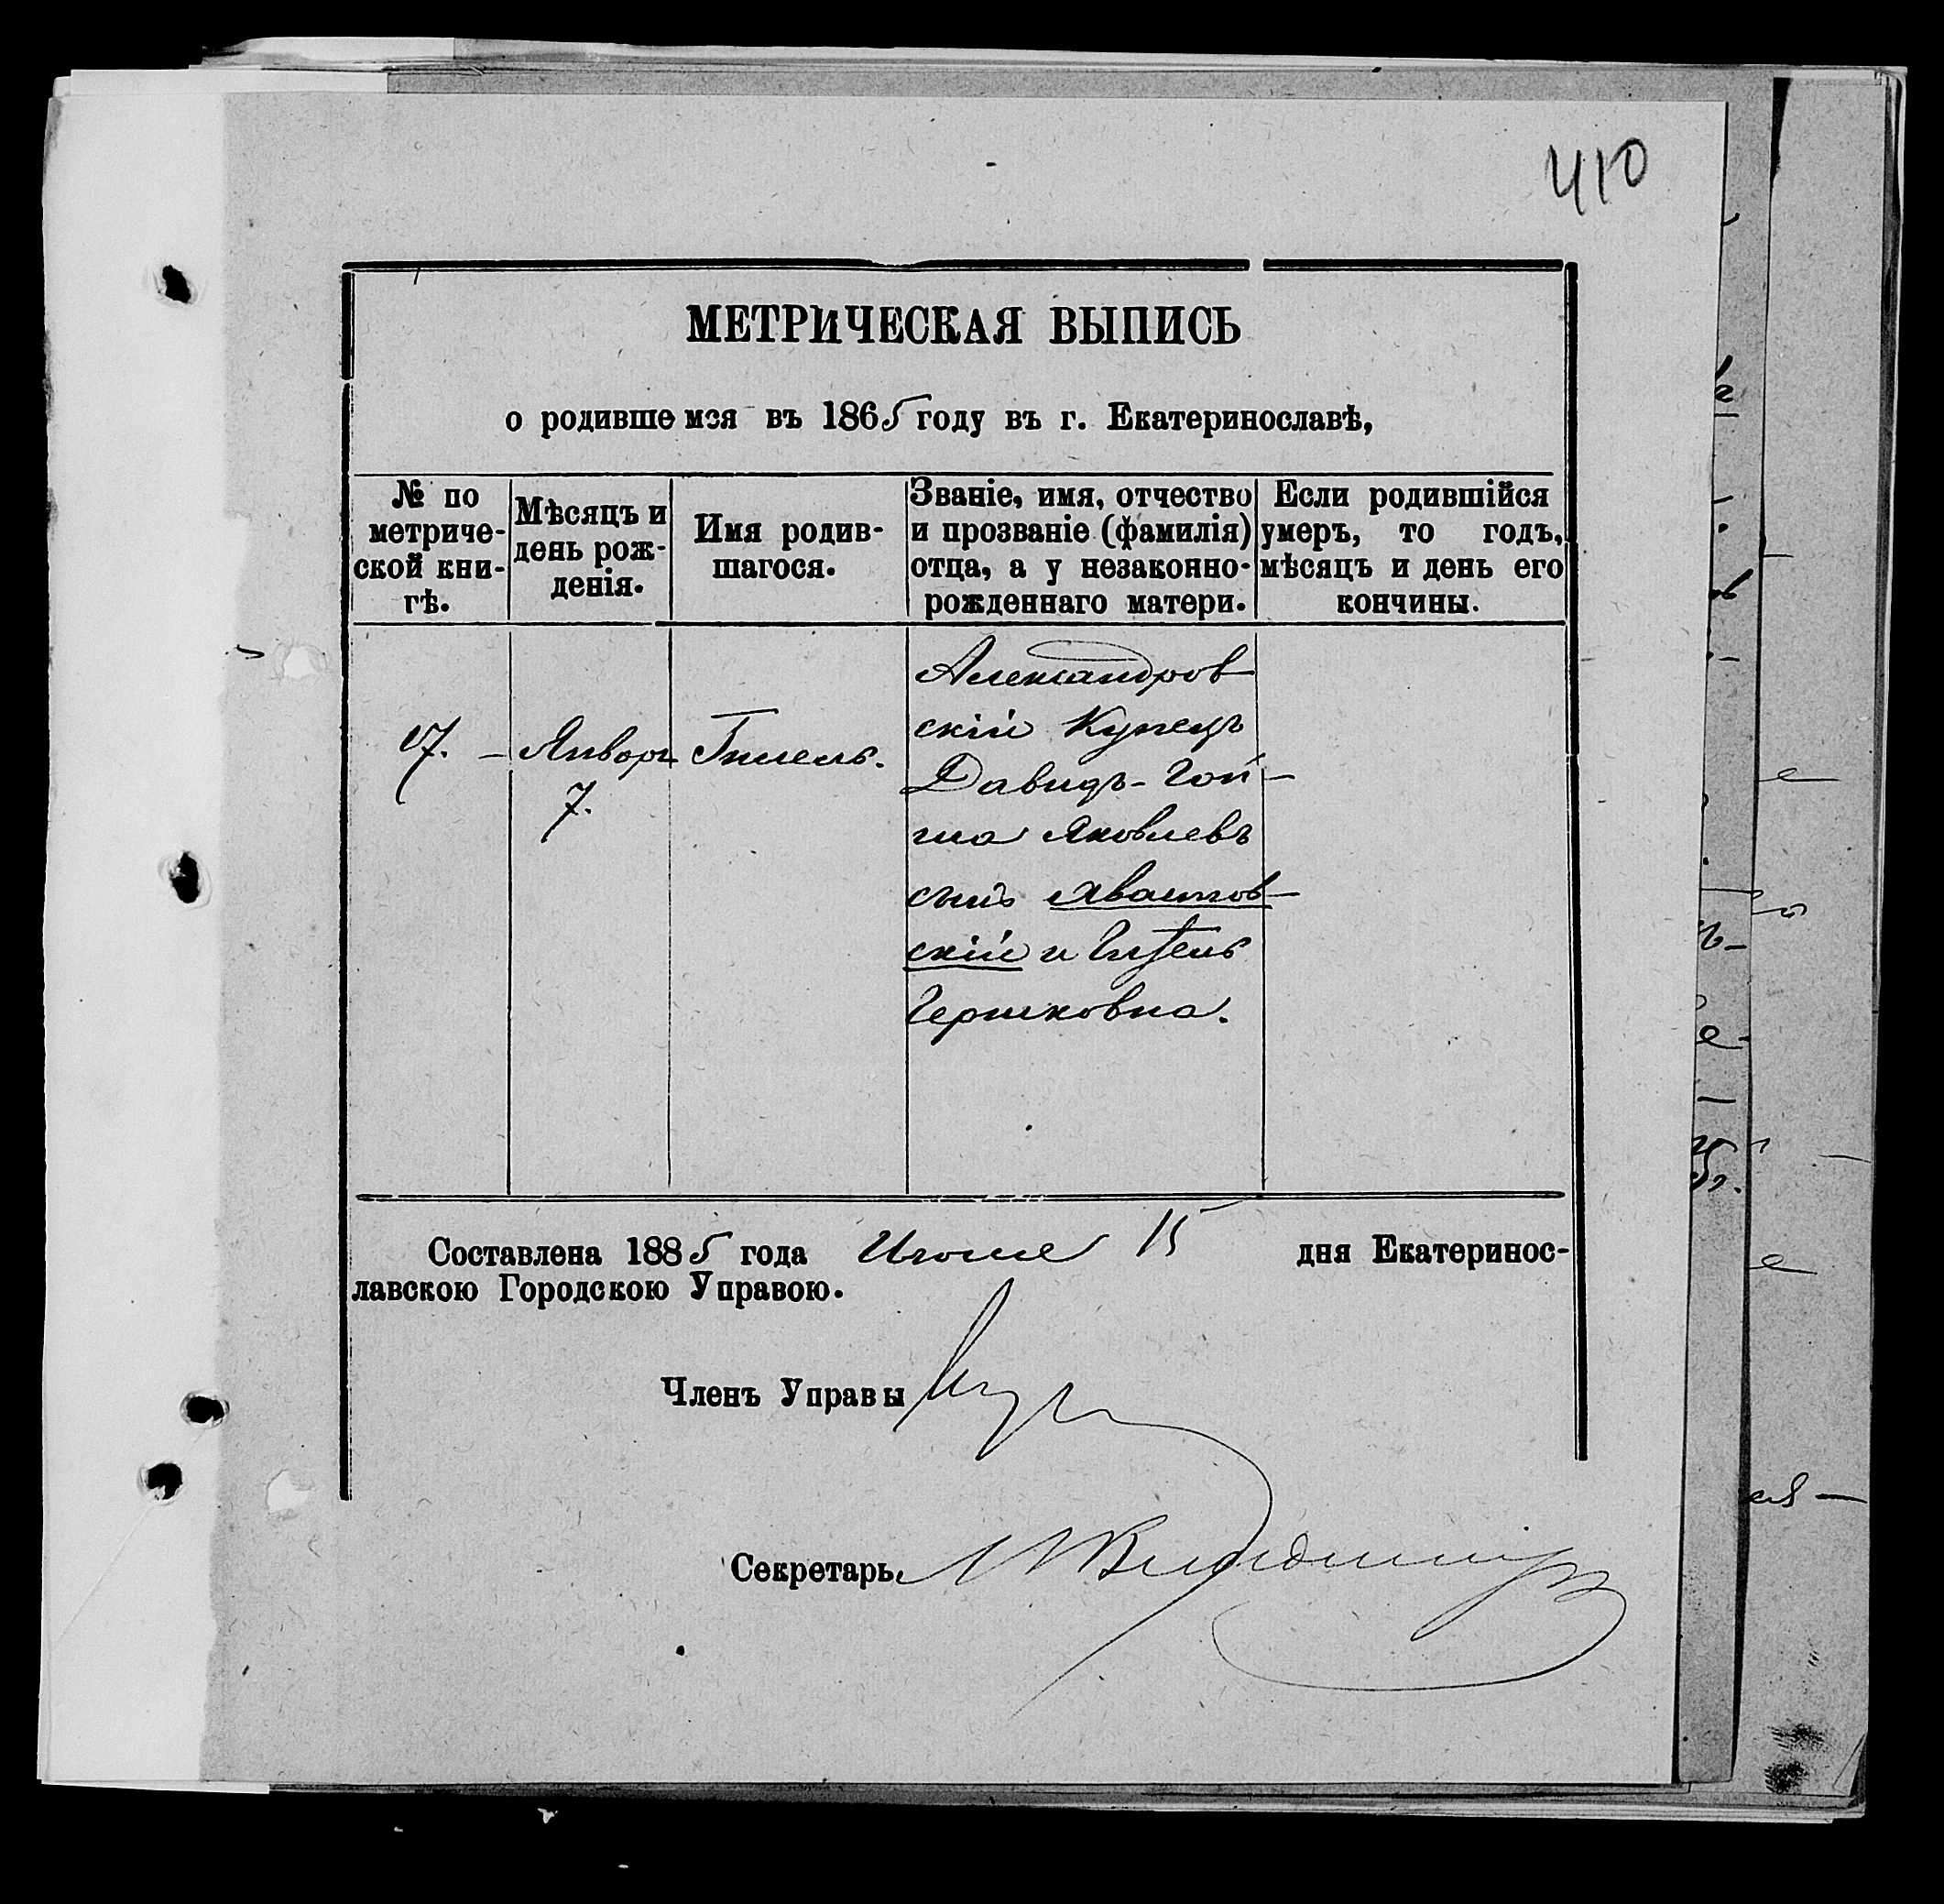 410
МЕТРИЧЕСКАЯ ВЫПИСЬ
о родившемся въ 1865 году въ г. Екатеринославѣ,
№ по метриче-ской кни-гѣ.
Мѣсяцъ и день рож-денія.
Имя родив-шагося.
Званіе, имя, отчество и прозваніе (фамилія) отца, а у незаконно-рожденнаго матери.
Если родившійся умеръ, то годъ, мѣсяцъ и день его кончины.
17. – Январь Гилель.
7.
Александров
скій Купецъ
Давидъ-Гой–
ша Яковлевъ
сынъ Хвастов–
скій и Гитель
Гершковна.
Составлена 1885 года Июля 15 дня Екатеринос-
лавскою Городскою Управою.
Членъ Управы
Секретарь